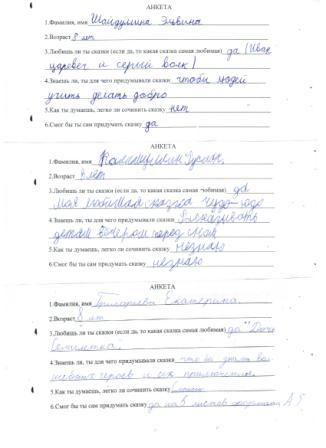 АНКЕТА
1.Фамилия, имя Шайдуллина Эльвина
2.Возраст 8 лет
3.Любишь ли ты сказки (если да, то какая сказка самая любимая) да (Иван
царевич и серый волк)
4.Знаешь ли, ты для чего придумывали сказки чтобы людей
учить делать добро
5.Как ты думаешь, легко ли сочинить сказку нет
6.Смог бы ты сам придумать сказку да
АНКЕТА
1.Фамилия, имя
2.Возраст 8 лет
3.Любишь ли ты сказки (если да, то какая сказка самая любимая) да
моя любимая сказка Чудо-юдо
4.Знаешь ли, ты для чего придумывали сказки
детям вечером перед сном
5.Как ты думаешь, легко ли сочинить сказку незнаю
6.Смог бы ты сам придумать сказку незнаю
АНКЕТА
1.Фамилия, имя Екатерина
2.Возраст 8 лет
3.Любишь ли ты сказки (если да, то какая сказка самая любимая) да "Дочь
Семилетка"
4.Знаешь ли, ты для чего придумывали сказки что бы знать во
шебных героев и их приключения
5.Как ты думаешь, легко ли сочинить сказку
6.Смог бы ты сам придумать сказку да на 5 листов формата А5